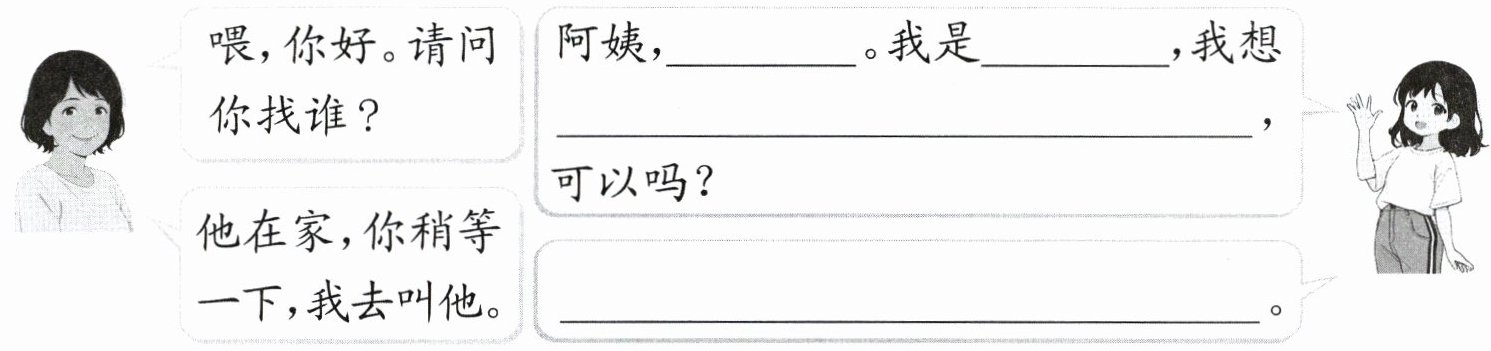 喂，你好。请问
你找谁？
阿姨，__________。我是__________，我想
________________________________________，
可以吗？
他在家，你稍等
一下，我去叫他。
________________________________________。